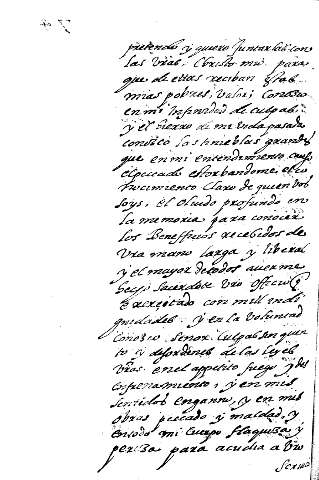 pretendo y quiero Juntarlas con
las Vras, Christo mio para
que de ellas reciban estas
mias pobres, valor; Conozco
en mi Infinidad de culpas
y el hierro de mi vida pasada
conozco las tinieblas grandes
que en mi entendimiento causo
el peccado estorbandome el co
nocimiento Claro de quien vos
soys; El Oluido profundo en
la memoria para conocer
los Beneficios recebidos de
Vra mano larga y liberal
y el mayor de todos averme
hecho sacerdote Vro officio
Exercitado con mill indi
gnidades, y en la Voluntad
Conozco Señor Culpas en quan
to y desordenes de las leyes
Vras en el appetito fuego y des
enfrenamiento, y en mis
sentidos enganno, y en mis
obras peccado y maldad, y
en todo mi cuerpo flaqueza y
pereza para acudir a Vro
Seruicio